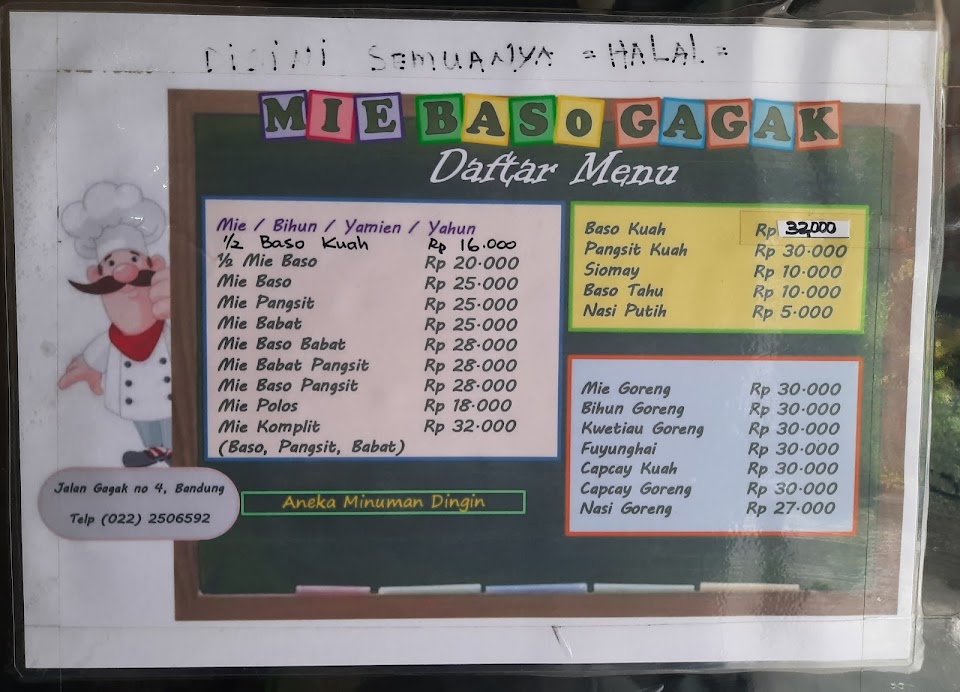 DISINI SEMUANYA = HALAL =
MIE BASO GAGAK
Daftar Menu
Mie / Bihun / Yamien / Yahun
1/2 Baso Kuah Rp 16.000
1/2 Mie Baso Rp 20.000
Mie Baso Rp 25.000
Mie Pangsit Rp 25.000
Mie Babat Rp 25.000
Mie Baso Babat Rp 28.000
Mie Babat Pangsit Rp 28.000
Mie Baso Pangsit Rp 28.000
Mie Polos Rp 18.000
Mie Komplit Rp 32.000
(Baso, Pangsit, Babat)
Baso Kuah Rp 32,000
Pangsit Kuah Rp 30.000
Siomay Rp 10.000
Baso Tahu Rp 10.000
Nasi Putih Rp 5.000
Mie Goreng Rp 30.000
Bihun Goreng Rp 30.000
Kwetiau Goreng Rp 30.000
Fuyunghai Rp 30.000
Capcay Kuah Rp 30.000
Capcay Goreng Rp 30.000
Nasi Goreng Rp 27.000
Jalan Gagak no 4, Bandung
Telp (022) 2506592
Aneka Minuman Dingin